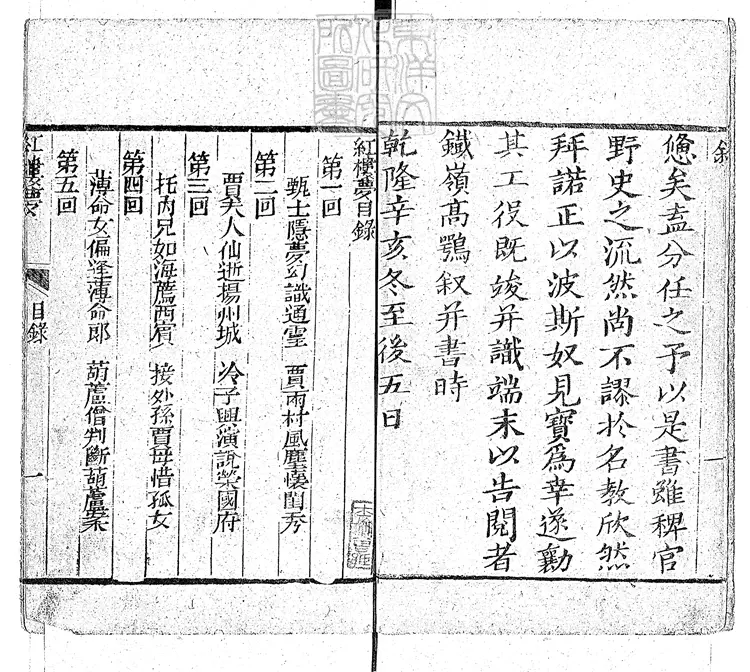 敘
憊矣盍分任之予以是書雖稗官
野史之流然尚不謬於名教欣然
拜諾正以波斯奴見寶為幸遂勷
其工役既竣并識端末以告閱者
鐵嶺高鶚叙并書時
乾隆辛亥冬至後五日
一
紅樓夢目錄
第一回
甄士隱夢幻識通靈 賈雨村風塵懷閨秀
第二回
賈夫人仙逝揚州城 冷子興演說榮國府
第三回
托內兄如海薦西賓 接外孫賈母惜孤女
第四回
薄命女偏逢薄命郎 葫蘆僧判斷葫蘆案
第五回
紅樓夢
目錄
一